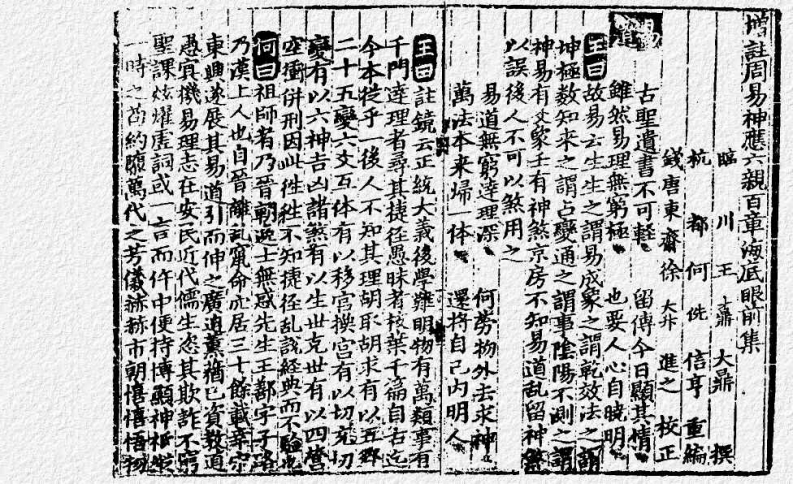 增註周易神應六親百章海底眼前集
臨川王鼐大鼎撰
杭都何侁信亨重編
錢唐東齋徐大升進之校正
易道
古聖遺書不可輕 留傳今日顯其情
雖然易理無窮極 也要人心自曉明
王曰故易云生生之謂易成象之謂乾效法之謂
坤極数知來之謂占變通之謂事陰陽不測之謂
神易有爻象壬有神煞京房不知易道乱留神煞
以誤後人不可以煞用之
易道無窮達理深 何勞物外去求神
萬法本来歸一体 還将自己内明人
王曰註鏡云正統大義後學難明物有萬類事有
千門達理者尋其捷径愚昧者枝葉千篇自古迄
今本従乎 後人不知其理胡取胡求有以五
二十五變六爻互体有以移官換宫有以切克切
變有以六神吉凶諸煞有以生世克世有以四營
空衝併刑因此徃徃不知捷径乱說經典而不驗也
何曰祖師者乃晉朝逸士無惑先生王鄯字子洛
乃漢上人也自晉離乱窮命亦居三十餘載宰
東興遂展其易道引而伸之廣逍薰蕕已資教道
愚冥機易理志在安民近代儒生恣其欺詐不窮
聖課炫耀虚詞或一言而仵中便恃博顯神祗
一時之苟約隳萬代之芳儀赫赫市朝憘憘悟物